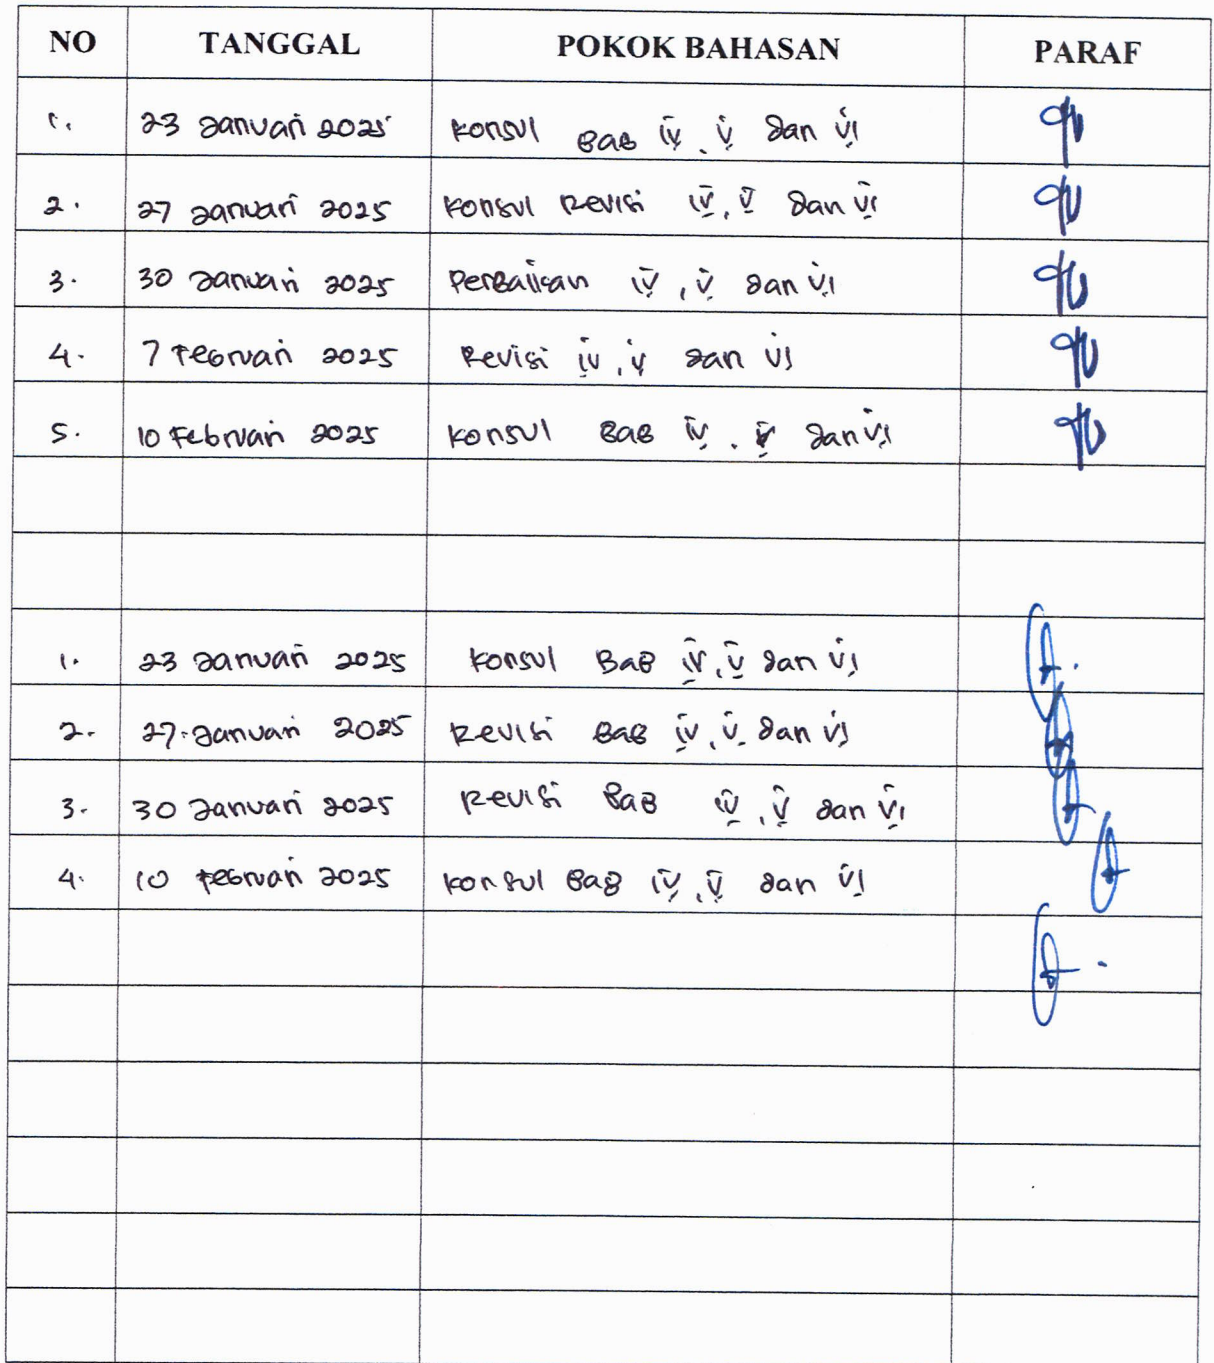 NO TANGGAL POKOK BAHASAN PARAF
1. 23 Januari 2025 Konsul BAB IV, V dan VI
2. 27 Januari 2025 Konsul Revisi IV, V dan VI
3. 30 Januari 2025 Perbaikan IV, V dan VI
4. 7 Februari 2025 Revisi IV, V dan VI
5. 10 Februari 2025 Konsul BAB IV, V dan VI
1. 23 Januari 2025 Konsul BAB IV, V dan VI
2. 27 Januari 2025 Revisi BAB IV, V dan VI
3. 30 Januari 2025 Revisi BAB IV, V dan VI
4. 10 Februari 2025 Konsul BAB IV, V dan VI